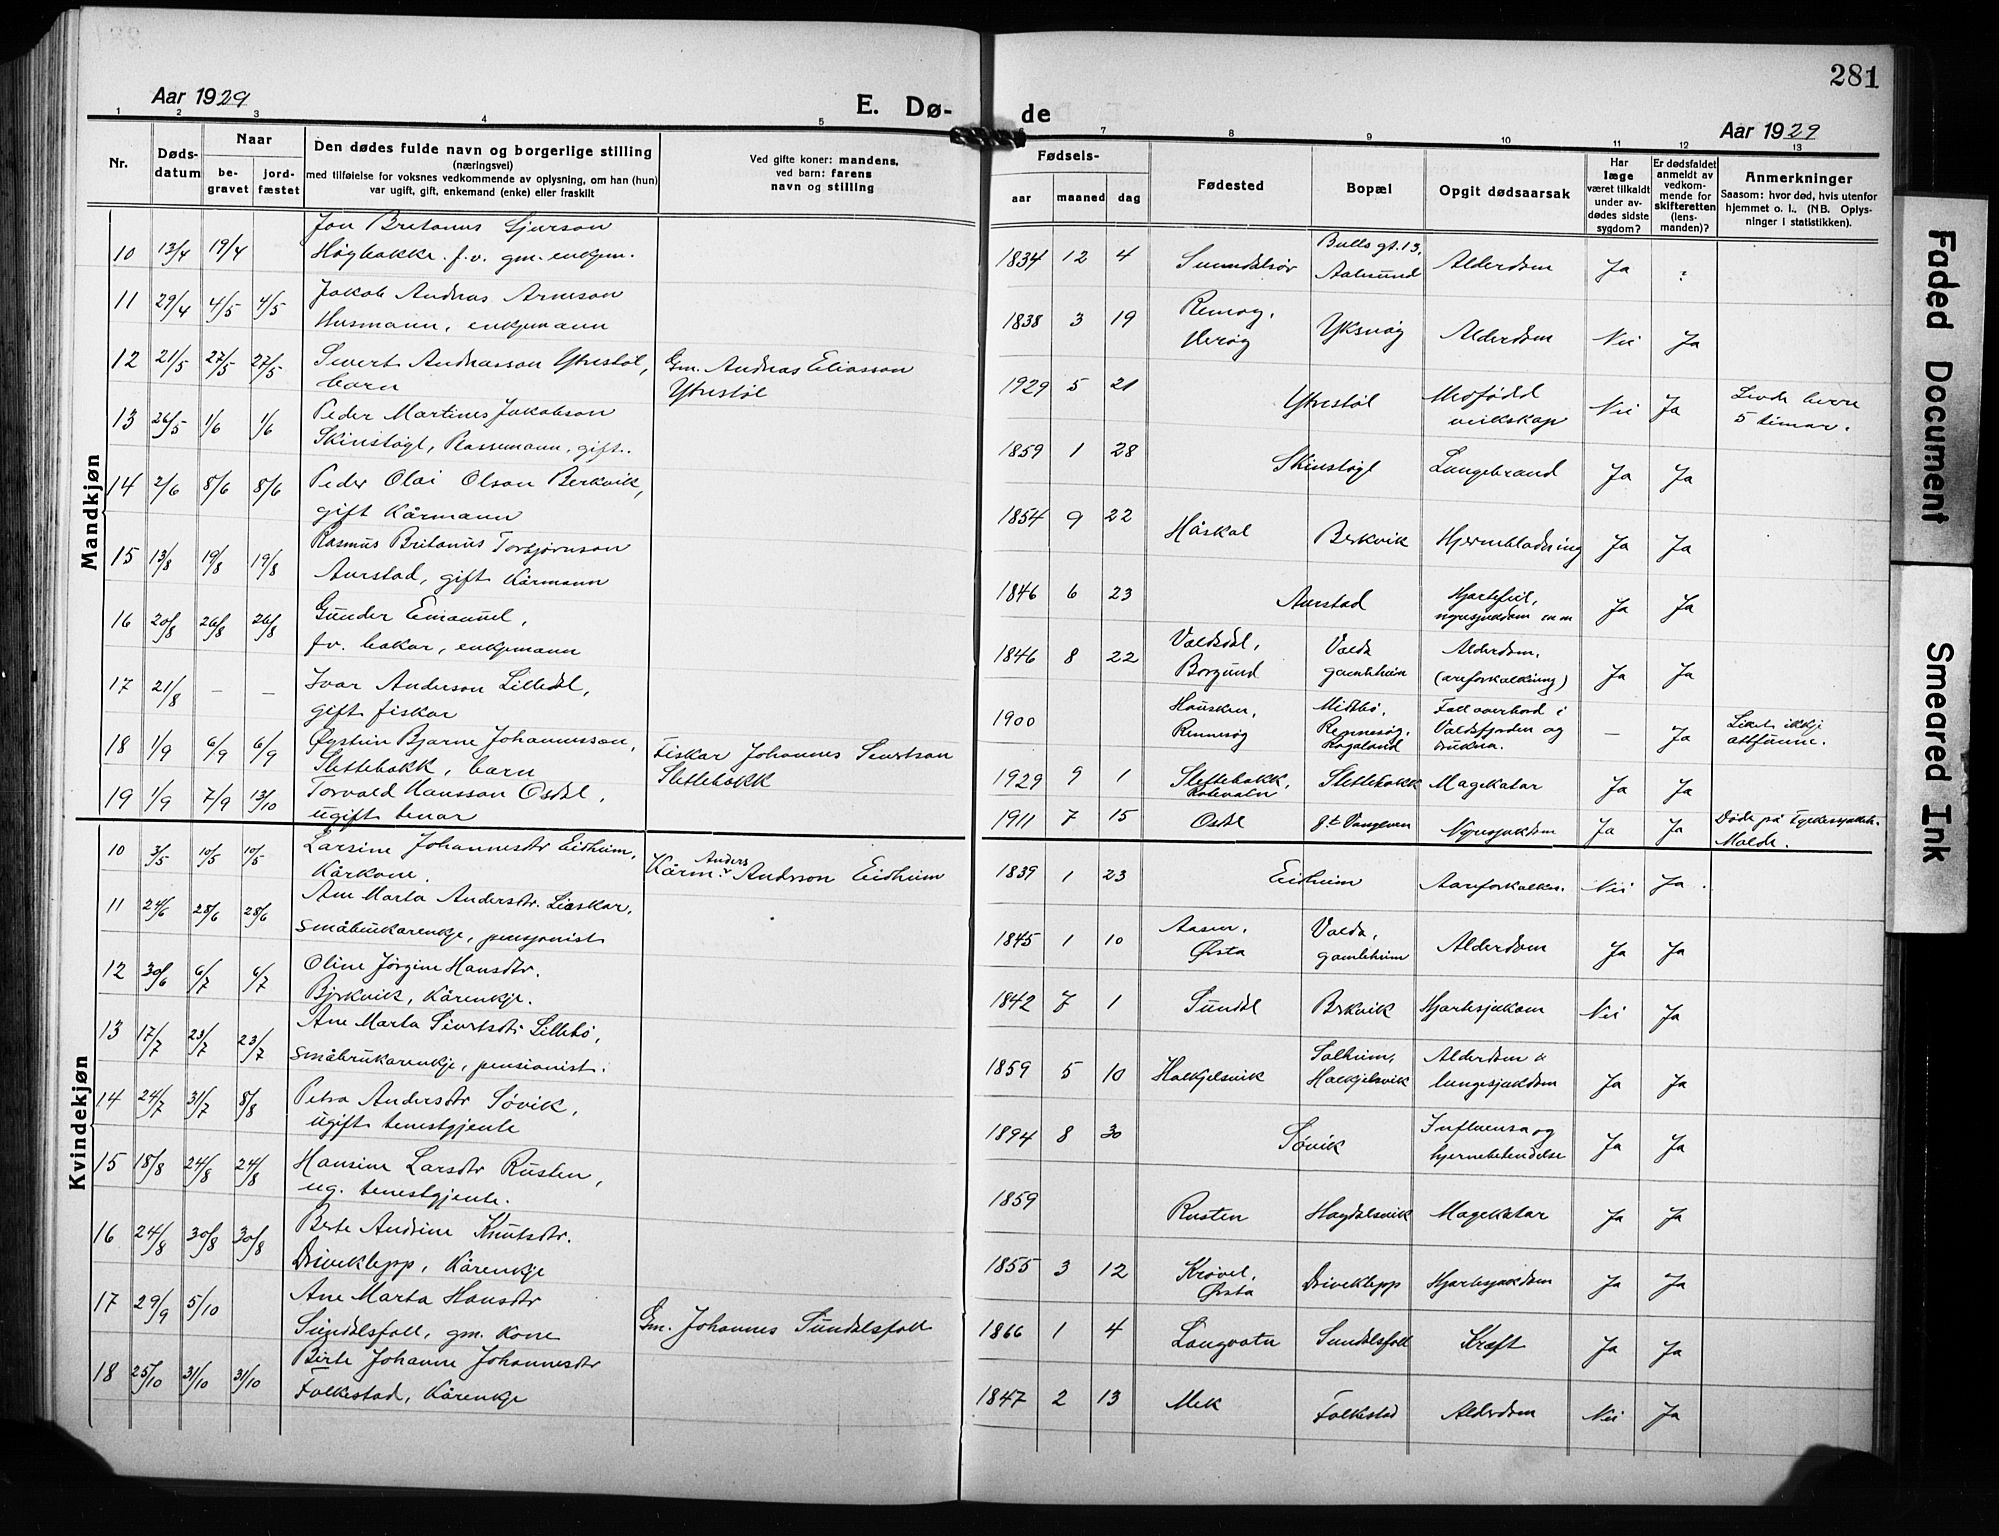 281
Aar 1929
E. Dø- de
Aar 1929
1 2 3 4 5 6 7 8 9 10 11 12 13
Nr.
Døds-
datum
Naar
be-
gravet
jord-
fæstet
Den dødes fulde navn og borgerlige stilling
(næringsvei)
med tilføielse for voksnes vedkommende av oplysning, om han (hun)
var ugift, gift, enkemand (enke) eller fraskilt
Ved gifte koner: mandens,
ved barn: farens
navn og stilling
Fødsels-
aar maaned dag
Fødested
Bopæl
Opgit dødsaarsak
Har
læge
været tilkaldt
under av-
dødes sidste
sygdom?
Er dødsfaldet
anmeldt av
vedkom-
mende for
skifteretten
(lens-
manden)?
Anmerkninger
Saasom: hvor død, hvis utenfor
hjemmet o. l.. (NB. Oplys-
ninger i statistikken).
Mandkjøn
10 13/4 19/4 Jon Britanus Sjurson
Høgbakke. f.v. gm. enkjem.
1834 12 4 Sunndalsør Bulls gt. 13,
Aalesund Alderdom Ja ?
11 29/4 4/5 4/5 Jakob Andreas Arneson
Husmann, enkjemann
1838 3 19 Remøy,
Herøy Yksnøy Alderdom Nei Ja
12 21/5 27/5 27/5 Sivert Andreasson Ytrestøl,
barn
Gm. Andreas Eliasson
Ytrestøl
1929 5 21 Ytrestøl Medfødd
veikskap Nei Ja Levde berre
5 timar.
13 26/5 1/6 1/6 Peder Martines Jakobson
Skinstøyl, Plassemann, gift.
1859 1 28 Skinstøyl Lungebrand Ja Ja
14 2/6 8/6 8/6 Peder Olai Olson Berkvik,
gift Kårmann
1854 9 22 Håskal Berkvik Hjernebladning Ja Ja
15 13/8 19/8 19/8 Rasmus Britanus Torbjørnson
Aurstad, gift Kårmann
1846 6 23 Aurstad Hjartefeil,
nyresjukdom m m Ja Ja
16 20/8 26/8 26/8 Gunder Emanuel,
fv. bakar, enkjemann
1846 8 22 Valdsdal,
Borgund Volda
gamleheim Alderdom,
(areforkalkning) Ja Ja
17 21/8 – – Ivar Anderson Lilledal,
gift fiskar
1900 Hausken,
Rennesøy Midtbø,
Rennesøy,
Rogaland Fall overbord i
Voldsfjorden og
drukna. – Ja Liket ikkje
attfunne.
18 1/9 6/9 6/9 Øystein Bjarne Johannesson,
Slettebakk, barn
Fiskar Johannes Sivertson
Slettebakk
1929 9 1 Slettebakk,
Slettebakk Magekatar Ja Ja
19 1/9 7/9 13/10 Torvald Hansson Osdal,
ugift tenar
1911 7 15 Osdal Nyresjukdom Ja Ja Døde på
Molde.
Kvindekjøn
10 3/5 10/5 10/5 Larsine Johannesdtr Eidheim,
Kårkone.
Kårm. Anders Andrsson Eidheim
1839 1 23 Eidheim Aareforkalkn. Nei Ja.
11 24/6 28/6 28/6 Ane Marta Andersdtr. Lieskar,
småbrukarenkje, pensjonist
1845 1 10 Aasen,
Ørsta Volda,
gamleheim Alderdom Ja Ja
12 30/6 6/7 6/7 Oline Jørgine Hansdtr.
Bjrkvik, Kårenkje.
1842 7 1 Sundal Brkvik Hjartesjukdom Nei Ja
13 17/7 23/7 23/7 Ane Marta Sivertsdtr Lillebø,
småbrukarenkje, pensionist.
1859 5 10 Halkjelsvik Solheim,
Halkjelsvik Alderdom &
lungesjukdom Ja Ja
14 24/7 31/7 8/8 Petra Andersdtr Søvik,
ugift tenestgjente
1894 8 30 Søvik Influensa og
hjernebetendelse Ja Ja
15 18/8 24/8 24/8 Hansine Larsdtr Rusten,
ug. tenestgjente.
1859 Rusten Høydalsvik Magekatar Ja Ja
16 24/8 30/8 30/8 Berte Andrine Knutsdtr.
Driveklepp, Kårenkje
1855 3 12 Krøvel,
Ørsta Driveklepp Hjartesjukdom Ja Ja
17 29/9 5/10 Ane Marta Hansdtr
Sundalsfoll, gm. kone
Gm. Johannes Sundalsfoll
1866 1 4 Langvatn Sundalsfoll Kræft Ja Ja
18 25/10 31/10 31/10 Birte Johanne Johannesdtr
Folkestad, Kårenkje
1847 2 13 Mek Folkestad Alderdom Nei Ja
Faded Document
Smeared Ink